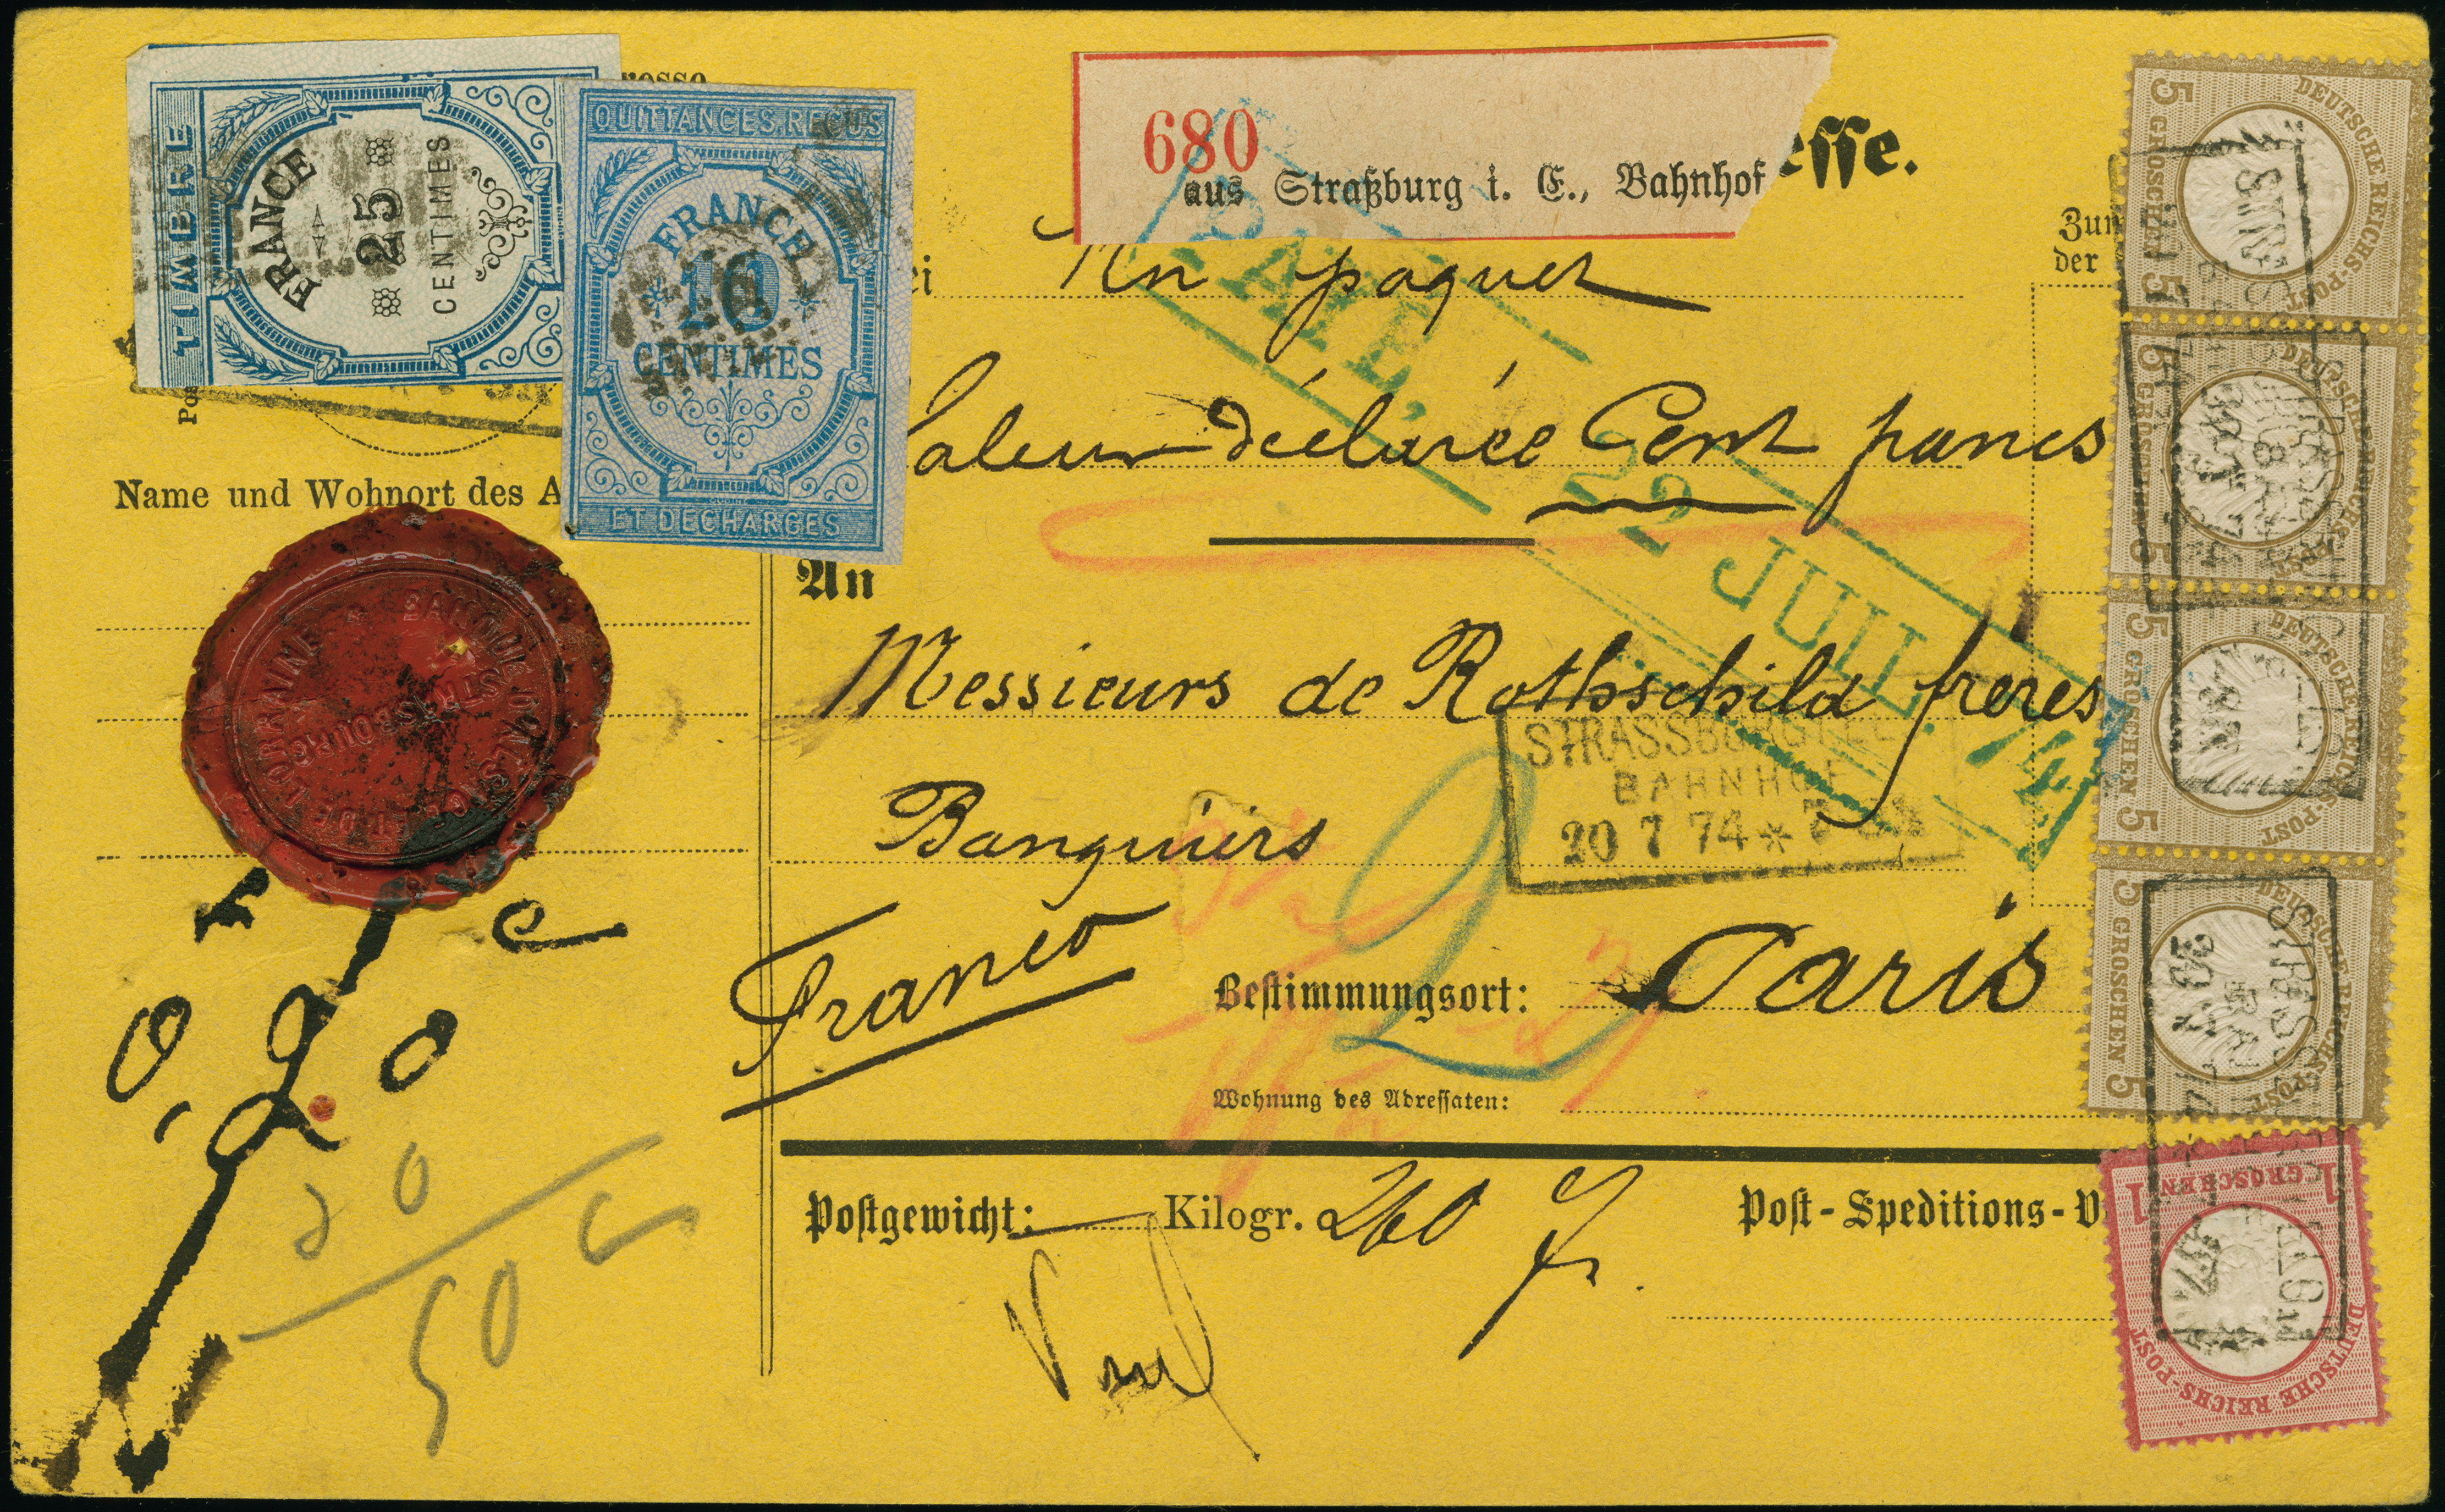 TIMBRE
FRANCE
25
CENTIMES
QUITTANCES, REÇUS
FRANCE
10
CENTIMES
ET DÉCHARGES
680
aus Straßburg i. E., Bahnhof
esse.
Zum
der
Un paquet
Valeur déclarée Cent francs
PAYÉ,
22 JUIL. 74
Name und Wohnort des A
An
Messieurs de Rothschild frères
Banquiers
STRASSBURG I. E.
BAHNHOF
20 7 74 *
Franco
Bestimmungsort: Paris
Wohnung des Adressaten:
Postgewicht: Kilogr. 260 g.
Post-Speditions-
20
50 c
2
STRASBOURG
5 GROSCHEN 5
DEUTSCHE REICHS-POST
5 GROSCHEN 5
DEUTSCHE REICHS-POST
5 GROSCHEN 5
DEUTSCHE REICHS-POST
5 GROSCHEN 5
DEUTSCHE REICHS-POST
1 GROSCHEN 1
DEUTSCHE REICHS-POST